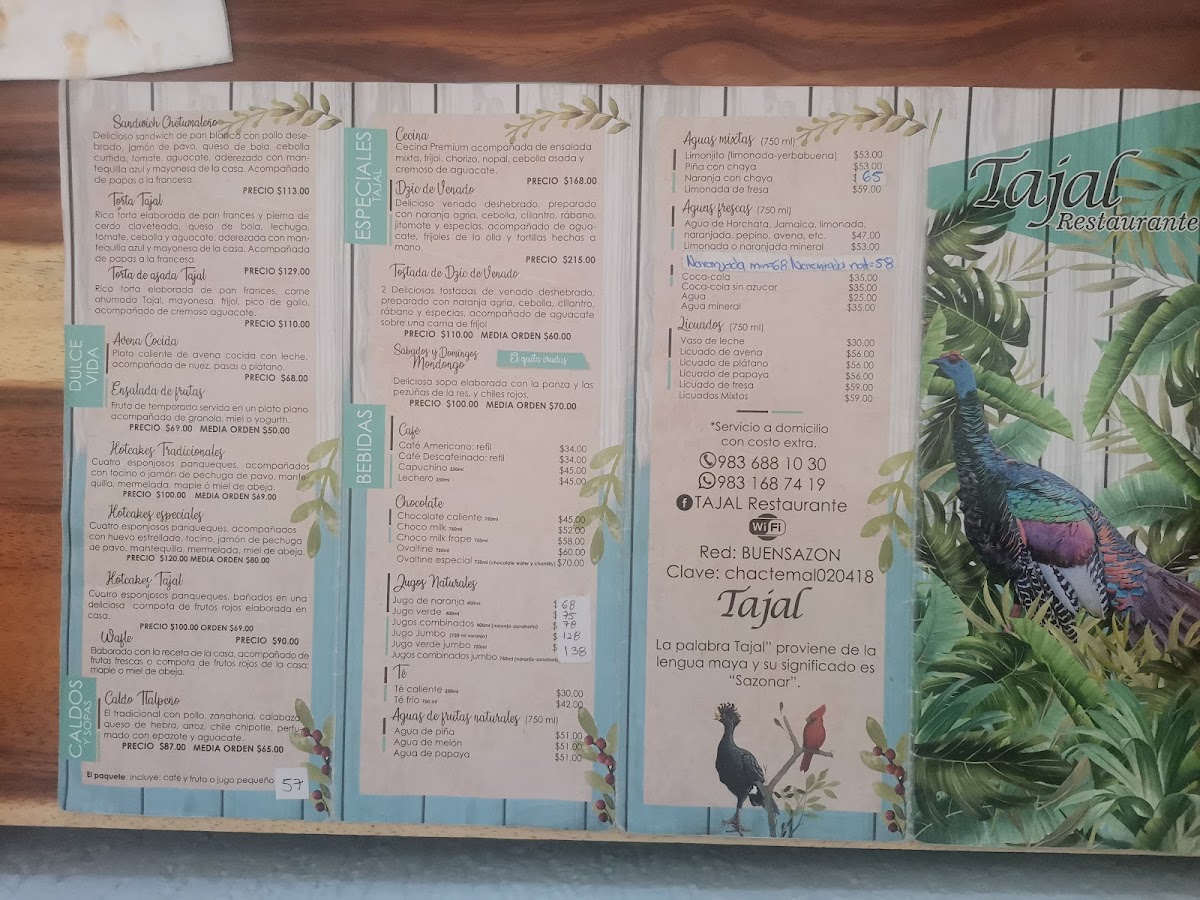 Sandwich Chetumaleño
Delicioso sandwich de pan blanco con pollo dese-
brado, jamón de pavo, queso de bola, cebolla
curtida, tomate, aguacate, aderezado con man-
tequilla azul y mayonesa de la casa. Acompañado
de papas a la francesa.
PRECIO $113.00
Torta Tajal
Rica torta elaborada de pan frances y pierna de
cerdo claveteado, queso de bola, lechuga,
tomate, cebolla y aguacate; aderezada con man-
tequilla azul y mayonesa de la casa. Acompañada
de papas a la francesa.
PRECIO $129.00
Torta de asada Tajal
Rica torta elaborada de pan frances, carne
ahumada Tajal, mayonesa, frijol, pico de gallo,
acompañado de cremoso aguacate.
PRECIO $110.00
DULCE
VIDA
Avena Cocida
Plato caliente de avena cocida con leche,
acompañada de nuez, pasas o plátano.
PRECIO $68.00
Ensalada de frutas
Fruta de temporada servida en un plato plano
acompañado de granola, miel o yogurth.
PRECIO $69.00 MEDIA ORDEN $50.00
Hotcakes Tradicionales
Cuatro esponjosos panqueques, acompañados
con tocino o jamón de pechuga de pavo, mante-
quilla, mermelada, maple ó miel de abeja.
PRECIO $100.00 MEDIA ORDEN $69.00
Hotcakes especiales
Cuatro esponjosos panqueques, acompañados
con huevo estrellado, tocino, jamón de pechuga
de pavo, mantequilla, mermelada, miel de abeja.
PRECIO $120.00 MEDIA ORDEN $80.00
Hotcakes Tajal
Cuarro esponjosos panqueques, bañados en una
deliciosa compota de frutos rojos elaborada en
casa.
PRECIO $100.00 ORDEN $69.00
Wafle
PRECIO $90.00
Elaborado con la receta de la casa, acompañado de
frutas frescas o compota de frutos rojos de la casa;
maple o miel de abeja.
CALDOS
Y SOPAS
Caldo Tlalpeño
El tradicional con pollo, zanahoria, calabaza,
queso de hebra, arroz, chile chipotle, perfu-
mado con epazote y aguacate.
PRECIO $87.00 MEDIA ORDEN $65.00
El paquete: incluye: café y fruta o jugo pequeño.
57
ESPECIALES
TAJAL
Cecina
Cecina Premium acompañada de ensalada
mixta, frijol, chorizo, nopal, cebolla asada y
cremoso de aguacate.
PRECIO $168.00
Dzic de Venado
Delicioso venado deshebrado, preparado
con naranja agria, cebolla, cilantro, rábano,
jitomate y especias, acompañado de agua-
cate, frijoles de la olla y tortillas hechas a
mano.
PRECIO $215.00
Tostada de Dzic de Venado
2 Deliciosas tostadas de venado deshebrado,
preparado con naranja agria, cebolla, cilantro,
rábano y especias, acompañado de aguacate
sobre una cama de frijol
PRECIO $110.00 MEDIA ORDEN $60.00
Sábados y Domingos
Mondongo
El quita crudas
Deliciosa sopa elaborada con la panza y las
pezuñas de la res, y chiles rojos.
PRECIO $100.00 MEDIA ORDEN $70.00
BEBIDAS
Café
Café Americano: refil $34.00
Café Descafeinado: refil $34.00
Capuchino 250ml $45.00
Lechero 250ml $45.00
Chocolate
Chocolate caliente 750ml $45.00
Choco milk 750ml $52.00
Choco milk frape 750ml $58.00
Ovaltine 750ml $60.00
Ovaltine especial 750ml (chocolate wafer y chantilly) $70.00
Jugos Naturales
Jugo de naranja 400ml $ 68
Jugo verde 400ml $ 75
Jugos combinados 400ml (naranja-zanahoria) $ 78
Jugo Jumbo (750 ml naranja) $ 128
Jugo verde jumbo 750ml $ 138
Jugos combinados jumbo 750ml (naranja-zanahoria)
Té
Té caliente 250ml $30.00
Té frío 750 ml $42.00
Aguas de frutas naturales (750 ml)
Agua de piña $51.00
Agua de melón $51.00
Agua de papaya $51.00
Aguas mixtas (750 ml)
Limonjito (limonada-yerbabuena) $53.00
Piña con chaya $53.00
Naranja con chaya $ 65
Limonada de fresa $59.00
Aguas frescas (750 ml)
Agua de Horchata, Jamaica, limonada,
naranjada, pepino, avena, etc. $47.00
Limonada o naranjada mineral $53.00
Naranjada min=68 Naranjada nat=58
Coca-cola $35.00
Coca-cola sin azucar $35.00
Agua $25.00
Agua mineral $35.00
Licuados (750 ml)
Vaso de leche $30.00
Licuado de avena $56.00
Licuado de plátano $56.00
Licuado de papaya $56.00
Licuado de fresa $59.00
Licuados Mixtos $59.00
*Servicio a domicilio
con costo extra.
983 688 10 30
983 168 74 19
TAJAL Restaurante
WiFi
Red: BUENSAZON
Clave: chactemal020418
Tajal
La palabra Tajal" proviene de la
lengua maya y su significado es
"Sazonar".
Tajal
Restaurante